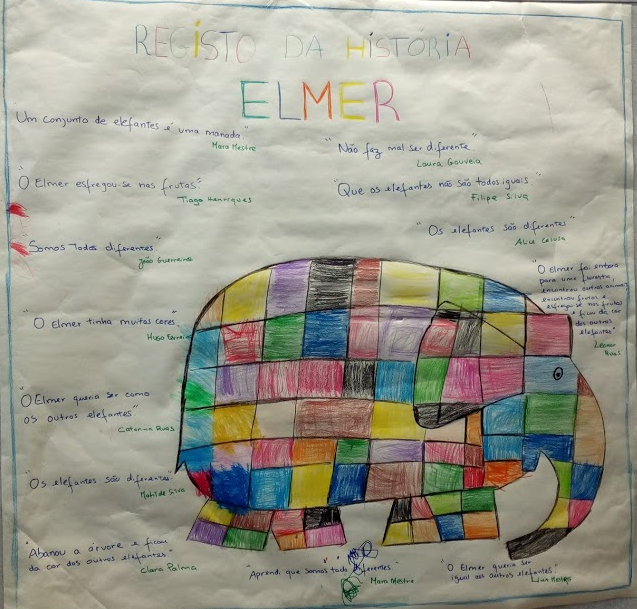 REGISTO DA HISTÓRIA
ELMER
"Um conjunto de elefantes é uma manada"
Mara Mestre
"Não faz mal ser diferente"
Laura Gouveia
"O Elmer esfregou-se nas frutas"
Tiago Henriques
"Que os elefantes não são todos iguais"
Filipe Silva
"Os elefantes são diferentes"
Alice
"Somos Todos diferentes"
João Guerreiro
"O Elmer foi embora
para uma floresta,
encontrou outros animais,
encontrou frutas e
esfregou-se nas frutas
e ficou da cor
dos outros
elefantes"
Leonor
"O Elmer tinha muitas cores"
Hugo Ferreira
"O Elmer queria ser como
os outros elefantes"
Catarina Ruas
"Os elefantes são diferentes"
Matilde Silva
"Abanou a árvore e ficou
da cor dos outros elefantes"
Clara Palma
"Aprendi que somos todos diferentes"
Mara Mestre
"O Elmer queria ser
igual aos outros elefantes"